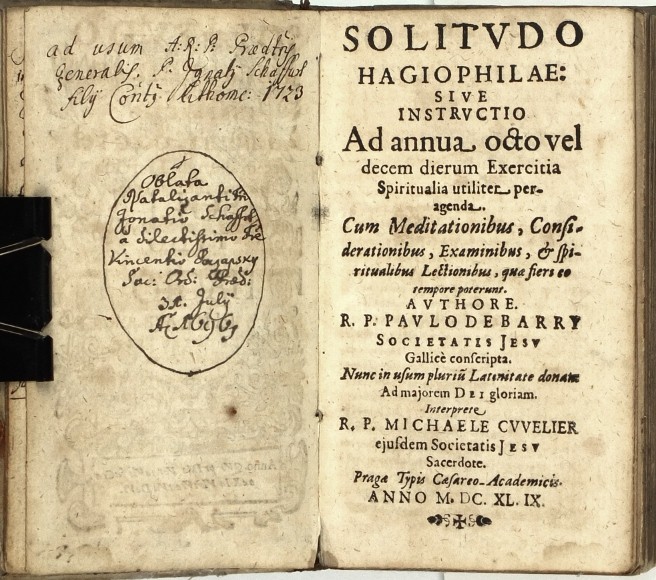 ad usum A: R: P: Prædtris
Generalis. P. Ignatÿ Schaffart
filÿ Contg. Lithome: 1723
Oblata
Natalizanti Fri
Ignatio Schaffart
a dilectissimo Fre
Vincentio
Sac: Ord: Præd:
31. Julÿ
SOLITVDO
HAGIOPHILAE:
SIVE
INSTRVCTIO
Ad annua octo vel
decem dierum Exercitia
Spiritualia utiliter per-
agenda.
Cum Meditationibus, Consi-
derationibus, Examinibus, & spi-
ritualibus Lectionibus, quæ fieri eo
tempore poterunt.
AVTHORE.
R. P. PAVLO DE BARRY
SOCIETATIS JESV
Gallicè conscripta.
Nunc in usum pluriũ Latinitate donata
Ad majorem DEI gloriam.
Interprete
R. P. MICHAELE CVVELIER
ejusdem Societatis JESV
Sacerdote.
Pragæ Typis Cæsareo-Academicis.
ANNO M. DC. XL. IX.